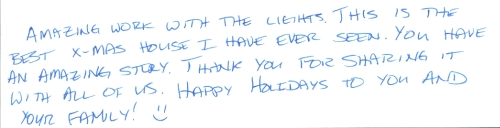 AMAZING WORK WITH THE LIGHTS. THIS IS THE
BEST X-MAS HOUSE I HAVE EVER SEEN. YOU HAVE
AN AMAZING STORY. THANK YOU FOR SHARING IT
WITH ALL OF US. HAPPY HOLIDAYS TO YOU AND
YOUR FAMILY! :)